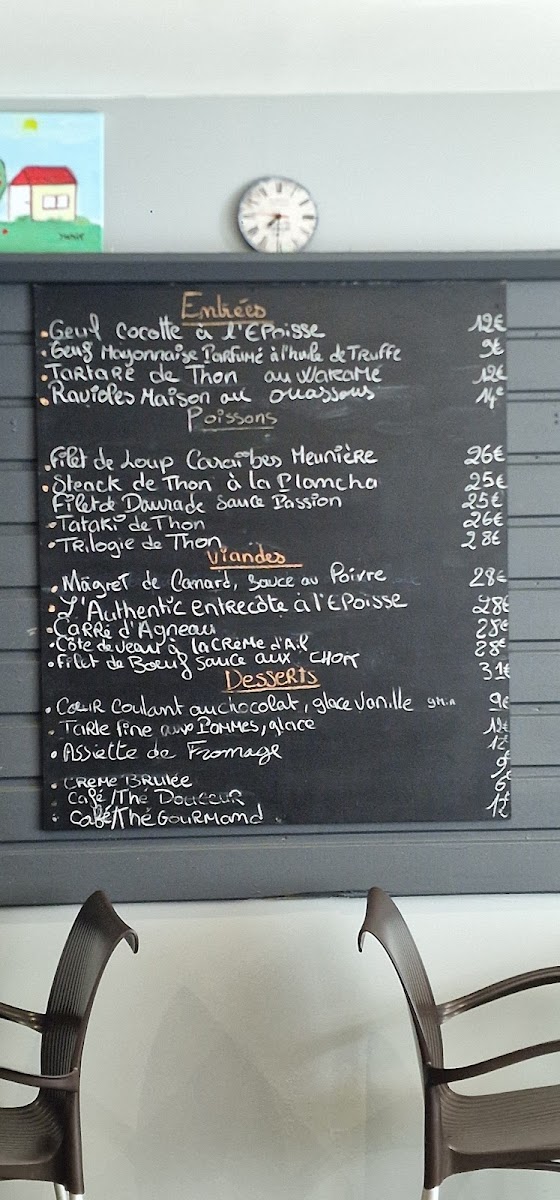 Entrées
Geuf Cocotte à l'EPoisse 12€
Geuf Mayonnaise Parfumé à l'huile de Truffe 9€
Tartare de Thon au Wakamé 12€
Ravioles Maison au ouassous 14€
Poissons
Filet de Loup Caraïbes Meunière 26€
Steack de Thon à la Plancha 25€
Filet de Daurade Sauce Passion 25€
Tataki de Thon 26€
Trilogie de Thon 28€
Viandes
Magret de Canard, Sauce au Poivre 28€
L'Authentic Entrecôte à l'EPoisse 28€
Carré d'Agneau 28€
Côte de veau à la Crème d'Ail 28€
Filet de Boeuf Sauce aux CHOIX 31€
Desserts
Coeur Coulant au chocolat, glace Vanille 9min 9€
Tarte fine aux Pommes, glace 12€
Assiette de Fromage 12€
Crème Brulée 9€
Café/Thé Douceur 6€
Café/Thé Gourmand 12€